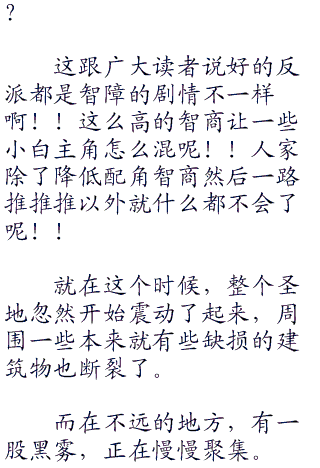 ?
这跟广大读者说好的反
派都是智障的剧情不一样
啊！！这么高的智商让一些
小白主角怎么混呢！！人家
除了降低配角智商然后一路
推推推以外就什么都不会了
呢！！
就在这个时候，整个圣
地忽然开始震动了起来，周
围一些本来就有些缺损的建
筑物也断裂了。
而在不远的地方，有一
股黑雾，正在慢慢聚集。